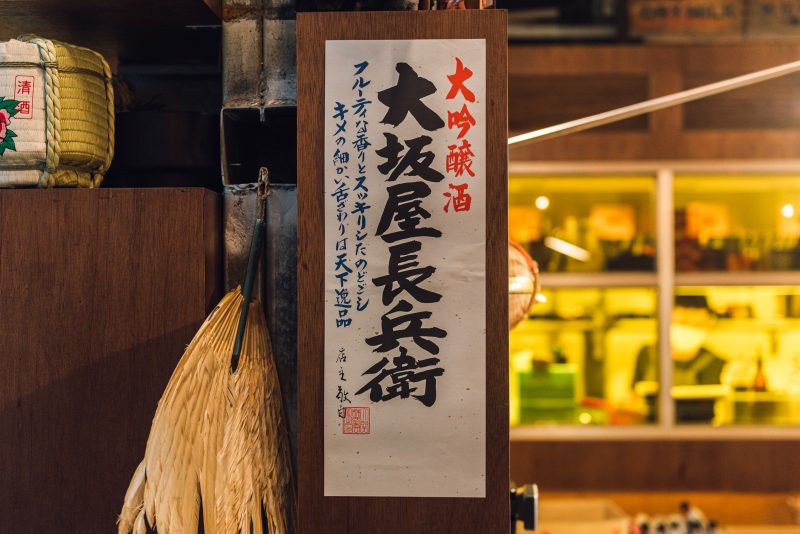 大吟醸酒
大坂屋長兵衛
フルーティな香りとスッキリシたのどごシ
キメの細かい舌ざわりは天下逸品
店主敬白
清酒